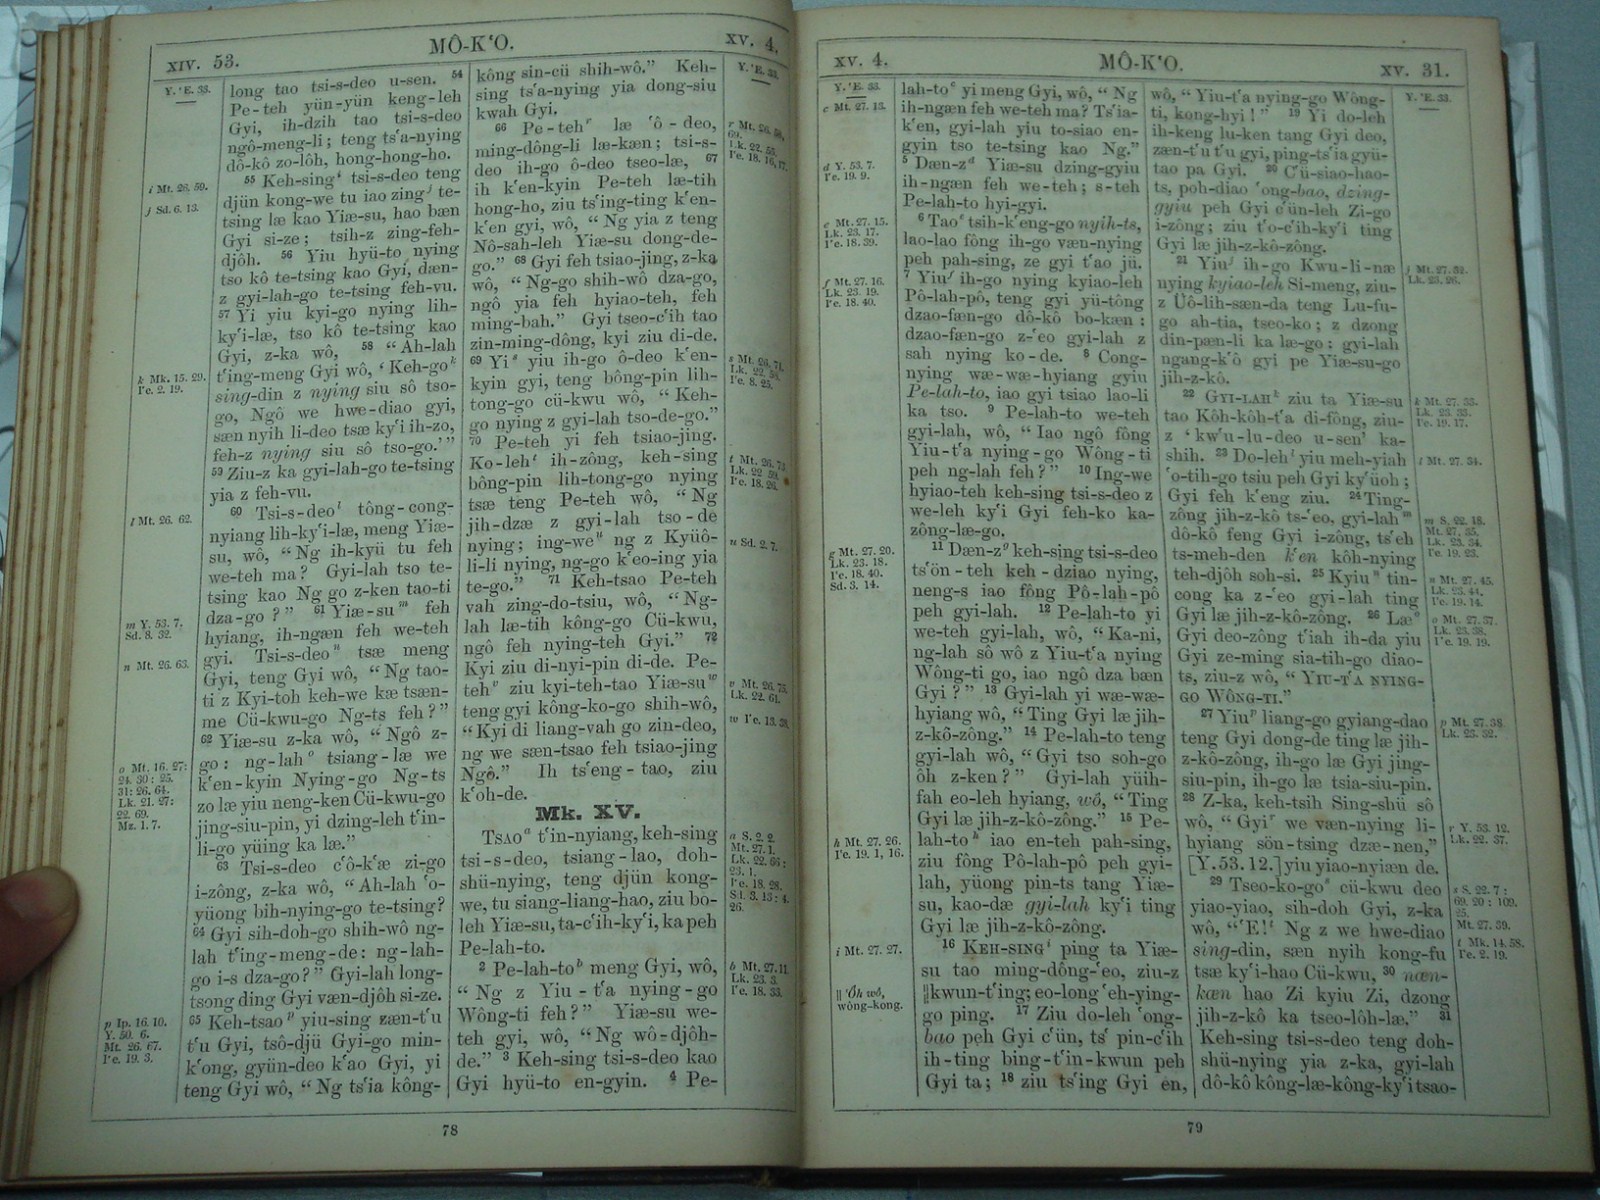 XIV. 53.
MÔ-KʻO.
XV. 4.
Y. ʻE. 33.
i Mt. 26. 59.
j Sd. 6. 13.
k Mk. 15. 29.
Iʻe. 2. 19.
l Mt. 26. 62.
m Y. 53. 7.
Sd. 8. 32.
n Mt. 26. 63.
o Mt. 16. 27:
24. 30: 25.
31: 26. 64.
Lk. 21. 27:
22. 69.
Mz. 1. 7.
p Ip. 16. 10.
Y. 50. 6.
Mt. 26. 67.
Iʻe. 19. 3.
long tao tsi-s-deo u-sen. 54
Pe-teh yün-yün keng-leh
Gyi, ih-dzih tao tsi-s-deo
ngô-meng-li; teng tsʻa-nying
dô-kô zo-lôh, hong-hong-ho.
55 Keh-singi tsi-s-deo teng
djün kong-we tu iao zingj te-
tsing læ kao Yiæ-su, hao bæn
Gyi si-ze; tsih-z zing-feh-
djôh. 56 Yiu hyü-to nying
tso kô te-tsing kao Gyi, dæn-
z gyi-lah-go te-tsing feh-vu.
57 Yi yiu kyi-go nying lih-
kyʻi-læ, tso kô te-tsing kao
Gyi, z-ka wô, 58 “Ah-lah
tʻing-meng Gyi wô, ‘Keh-gok
sing-din z nying siu sô tso-
go, Ngô we hwe-diao gyi,
sæn nyih li-deo tsæ kyʻi ih-zo,
feh-z nying siu sô tso-go.’”
59 Ziu-z ka gyi-lah-go te-tsing
yia z feh-vu.
60 Tsi-s-deol tông-cong-
nyiang lih-kyʻi-læ, meng Yiæ-
su, wô, “Ng ih-kyü tu feh
we-teh ma? Gyi-lah tso te-
tsing kao Ng go z-ken tao-ti
dza-go?” 61 Yiæ-sum feh
hyiang, ih-ngæn feh we-teh
gyi. Tsi-s-deon tsæ meng
Gyi, teng Gyi wô, “Ng tao-
ti z Kyi-toh keh-we kæ tsæn-
me Cü-kwu-go Ng-ts feh?”
62 Yiæ-su z-ka wô, “Ngô z-
go: ng-laho tsiang-læ we
kʻen-kyin Nying-go Ng-ts
zo læ yiu neng-ken Cü-kwu-go
jing-siu-pin, yi dzing-leh tʻin-
li-go yüing ka læ.”
63 Tsi-s-deo cʻô-kʻæ zi-go
i-zông, z-ka wô, “Ah-lah ʻo-
yüong bih-nying-go te-tsing?
64 Gyi sih-doh-go shih-wô ng-
lah tʻing-meng-de: ng-lah-
go i-s dza-go?” Gyi-lah long-
tsong ding Gyi væn-djôh si-ze.
65 Keh-tsaop yiu-sing zæn-tʻu
tʻu Gyi, tsô-djü Gyi-go min-
kʻong, gyün-deo kʻao Gyi, yi
teng Gyi wô, “Ng tsʻia kông-
kông sin-cü shih-wô.” Keh-
sing tsʻa-nying yia dong-siu
kwah Gyi.
66 Pe-tehr læ ʻô-deo,
ming-dông-li læ-kæn; tsi-s-
deo ih-go ô-deo tseo-læ, 67
ih kʻen-kyin Pe-teh læ-tih
hong-ho, ziu tsʻing-ting kʻen-
kʻen gyi, wô, “Ng yia z teng
Nô-sah-leh Yiæ-su dong-de-
go.” 68 Gyi feh tsiao-jing, z-ka
wô, “Ng-go shih-wô dza-go,
ngô yia feh hyiao-teh, feh
ming-bah.” Gyi tseo-cʻih tao
zin-ming-dông, kyi ziu di-de.
69 Yis yiu ih-go ô-deo kʻen-
kyin gyi, teng bông-pin lih-
tong-go cü-kwu wô, “Keh-
go nying z gyi-lah tso-de-go.”
70 Pe-teh yi feh tsiao-jing.
Ko-leht ih-zông, keh-sing
bông-pin lih-tong-go nying
tsæ teng Pe-teh wô, “Ng
jih-dzæ z gyi-lah tso-de
nying; ing-weu ng z Kyüô-
li-li nying, ng-go kʻeo-ing yia
te-go.” 71 Keh-tsao Pe-teh
vah zing-do-tsiu, wô, “Ng-
lah læ-tih kông-go Cü-kwu,
ngô feh nying-teh Gyi.” 72
Kyi ziu di-nyi-pin di-de. Pe-
tehv ziu kyi-teh-tao Yiæ-suw
teng gyi kông-ko-go shih-wô,
“Kyi di liang-vah go zin-deo,
ng we sæn-tsao feh tsiao-jing
Ngô.” Ih tsʻeng-tao, ziu
kʻoh-de.
Mk. XV.
TSAOa tʻin-nyiang, keh-sing
tsi-s-deo, tsiang-lao, doh-
shü-nying, teng djün kong-
we, tu siang-liang-hao, ziu bo-
leh Yiæ-su, ta-cʻih-kyʻi, ka peh
Pe-lah-to.
2 Pe-lah-tob meng Gyi, wô,
“Ng z Yiu-tʻa nying-go
Wông-ti feh?” Yiæ-su we-
teh gyi, wô, “Ng wô-djôh-
de.” 3 Keh-sing tsi-s-deo kao
Gyi hyü-to en-gyin. 4 Pe-
Y. ʻE. 33.
Lk. 22. 55.
Iʻe. 18. 16, 17.
s Mt. 26. 71.
Lk. 22. 58.
Iʻe. 8. 25.
t Mt. 26. 73.
Lk. 22. 59.
Iʻe. 18. 26.
u Sd. 2. 7.
v Mt. 26. 75.
Lk. 22. 61.
w Iʻe. 13. 38.
a S. 2. 2.
Mt. 27. 1.
Lk. 22. 66:
23. 1.
Iʻe. 18. 28.
Sd. 3. 13: 4.
26.
b Mt. 27. 11.
Lk. 23. 3.
Iʻe. 18. 33.
78
XV. 4.
MÔ-KʻO.
XV. 31.
Y. ʻE. 33.
c Mt. 27. 13.
d Y. 53. 7.
Iʻe. 19. 9.
e Mt. 27. 15.
Lk. 23. 17.
Iʻe. 18. 39.
f Mt. 27. 16.
Lk. 23. 19.
Iʻe. 18. 40.
g Mt. 27. 20.
Lk. 23. 18.
Iʻe. 18. 40.
Sd. 3. 14.
h Mt. 27. 26.
Iʻe. 19. 1, 16.
i Mt. 27. 27.
|| ʻÔh wô,
wông-kong.
lah-toc yi meng Gyi, wô, “Ng
ih-ngæn feh we-teh ma? Tsʻia-
kʻen, gyi-lah yiu to-siao en-
gyin tso te-tsing kao Ng.”
5 Dæn-zd Yiæ-su dzing-gyiu
ih-ngæn feh we-teh; s-teh
Pe-lah-to hyi-gyi.
6 Taoe tsih-kʻeng-go nyih-ts,
lao-lao fông ih-go væn-nying
peh pah-sing, ze gyi tʻao jü.
7 Yiuf ih-go nying kyiao-leh
Pô-lah-pô, teng gyi yü-tông
dzao-fæn-go dô-kô bo-kæn:
dzao-fæn-go z-ʻeo gyi-lah z
sah nying ko-de. 8 Cong-
nying wæ-wæ-hyiang gyiu
Pe-lah-to, iao gyi tsiao lao-li
ka tso. 9 Pe-lah-to we-teh
gyi-lah, wô, “Iao ngô fông
Yiu-tʻa nying-go Wông-ti
peh ng-lah feh?” 10 Ing-we
hyiao-teh keh-sing tsi-s-deo z
we-leh kyʻi Gyi feh-ko ka-
zông-læ-go.
11 Dæn-zg keh-sing tsi-s-deo
tsʻön-teh keh-dziao nying,
neng-s iao fông Pô-lah-pô
peh gyi-lah. 12 Pe-lah-to yi
we-teh gyi-lah, wô, “Ka-ni,
ng-lah sô wô z Yiu-tʻa nying
Wông-ti go, iao ngô dza bæn
Gyi?” 13 Gyi-lah yi wæ-wæ-
hyiang wô, “Ting Gyi læ jih-
z-kô-zông.” 14 Pe-lah-to teng
gyi-lah wô, “Gyi tso soh-go
ôh z-ken?” Gyi-lah yüih-
fah eo-leh hyiang, wô, “Ting
Gyi læ jih-z-kô-zông.” 15 Pe-
lah-toh iao en-teh pah-sing,
ziu fông Pô-lah-pô peh gyi-
lah, yüong pin-ts tang Yiæ-
su, kao-dæ gyi-lah kyʻi ting
Gyi læ jih-z-kô-zông.
16 KEH-SINGi ping ta Yiæ-
su tao ming-dông-ʻeo, ziu-z
||kwun-tʻing; eo-long ʻeh-ying-
go ping. 17 Ziu do-leh ʻong-
bao peh Gyi cʻün, tsʻ pin-cʻih
ih-ting bing-tʻin-kwun peh
Gyi ta; 18 ziu tsʻing Gyi en,
wô, “Yiu-tʻa nying-go Wông-
ti, kong-hyi!” 19 Yi do-leh
ih-keng lu-ken tang Gyi deo,
zæn-tʻu tʻu gyi, ping-tsʻia gyü-
tao pa Gyi. 20 Cʻü-siao-hao-
ts, poh-diao ʻong-bao, dzing-
gyiu peh Gyi cʻün-leh Zi-go
i-zông; ziu tʻo-cʻih-kyʻi ting
Gyi læ jih-z-kô-zông.
21 Yiuj ih-go Kwu-li-næ
nying kyiao-leh Si-meng, ziu-
z Üô-lih-sæn-da teng Lu-fu-
go ah-tia, tseo-ko; z dzong
din-pæn-li ka læ-go: gyi-lah
ngang-kʻô gyi pe Yiæ-su-go
jih-z-kô.
22 GYI-LAHk ziu ta Yiæ-su
tao Kôh-kôh-tʻa di-fông, ziu-
z ‘kwʻu-lu-deo u-sen’ ka-
shih. 23 Do-lehl yiu meh-yiah
ʻo-tih-go tsiu peh Gyi kyʻüoh;
Gyi feh kʻeng ziu. 24 Ting-
zông jih-z-kô ts-ʻeo, gyi-lahm
dô-kô feng Gyi i-zông, tsʻeh
ts-meh-den kʻen kôh-nying
teh-djôh soh-si. 25 Kyiun tin-
cong ka z-ʻeo gyi-lah ting
Gyi læ jih-z-kô-zông. 26 Læo
Gyi deo-zông tʻiah ih-da yiu
Gyi ze-ming sia-tih-go diao-
ts, ziu-z wô, “YIU-TʻA NYING-
GO WÔNG-TI.”
27 Yiup liang-go gyiang-dao
teng Gyi dong-de ting læ jih-
z-kô-zông, ih-go læ Gyi jing-
siu-pin, ih-go læ tsia-siu-pin.
28 Z-ka, keh-tsih Sing-shü sô
wô, “Gyir we væn-nying li-
hyiang sön-tsing dzæ-nen,”
[Y. 53. 12.] yiu yiao-nyiæn de.
29 Tseo-ko-gos cü-kwu deo
yiao-yiao, sih-doh Gyi, z-ka
wô, “ʻE!t Ng z we hwe-diao
sing-din, sæn nyih kong-fu
tsæ kyʻi-hao Cü-kwu, 30 næn-
kæn hao Zi kyiu Zi, dzong
jih-z-kô ka tseo-lôh-læ.” 31
Keh-sing tsi-s-deo teng doh-
shü-nying yia z-ka, gyi-lah
dô-kô kông-læ-kông-kyʻi tsao-
Y. ʻE. 33.
j Mt. 27. 32.
Lk. 23. 26.
k Mt. 27. 33.
Lk. 23. 33.
Iʻe. 19. 17.
l Mt. 27. 34.
m S. 22. 18.
Mt. 27. 35.
Lk. 23. 34.
Iʻe. 19. 23.
n Mt. 27. 45.
Lk. 23. 44.
Iʻe. 19. 14.
o Mt. 27. 37.
Lk. 23. 38.
Iʻe. 19. 19.
p Mt. 27. 38.
Lk. 23. 32.
r Y. 53. 12.
Lk. 22. 37.
s S. 22. 7:
69. 20: 109.
25.
Mt. 27. 39.
t Mk. 14. 58.
Iʻe. 2. 19.
79